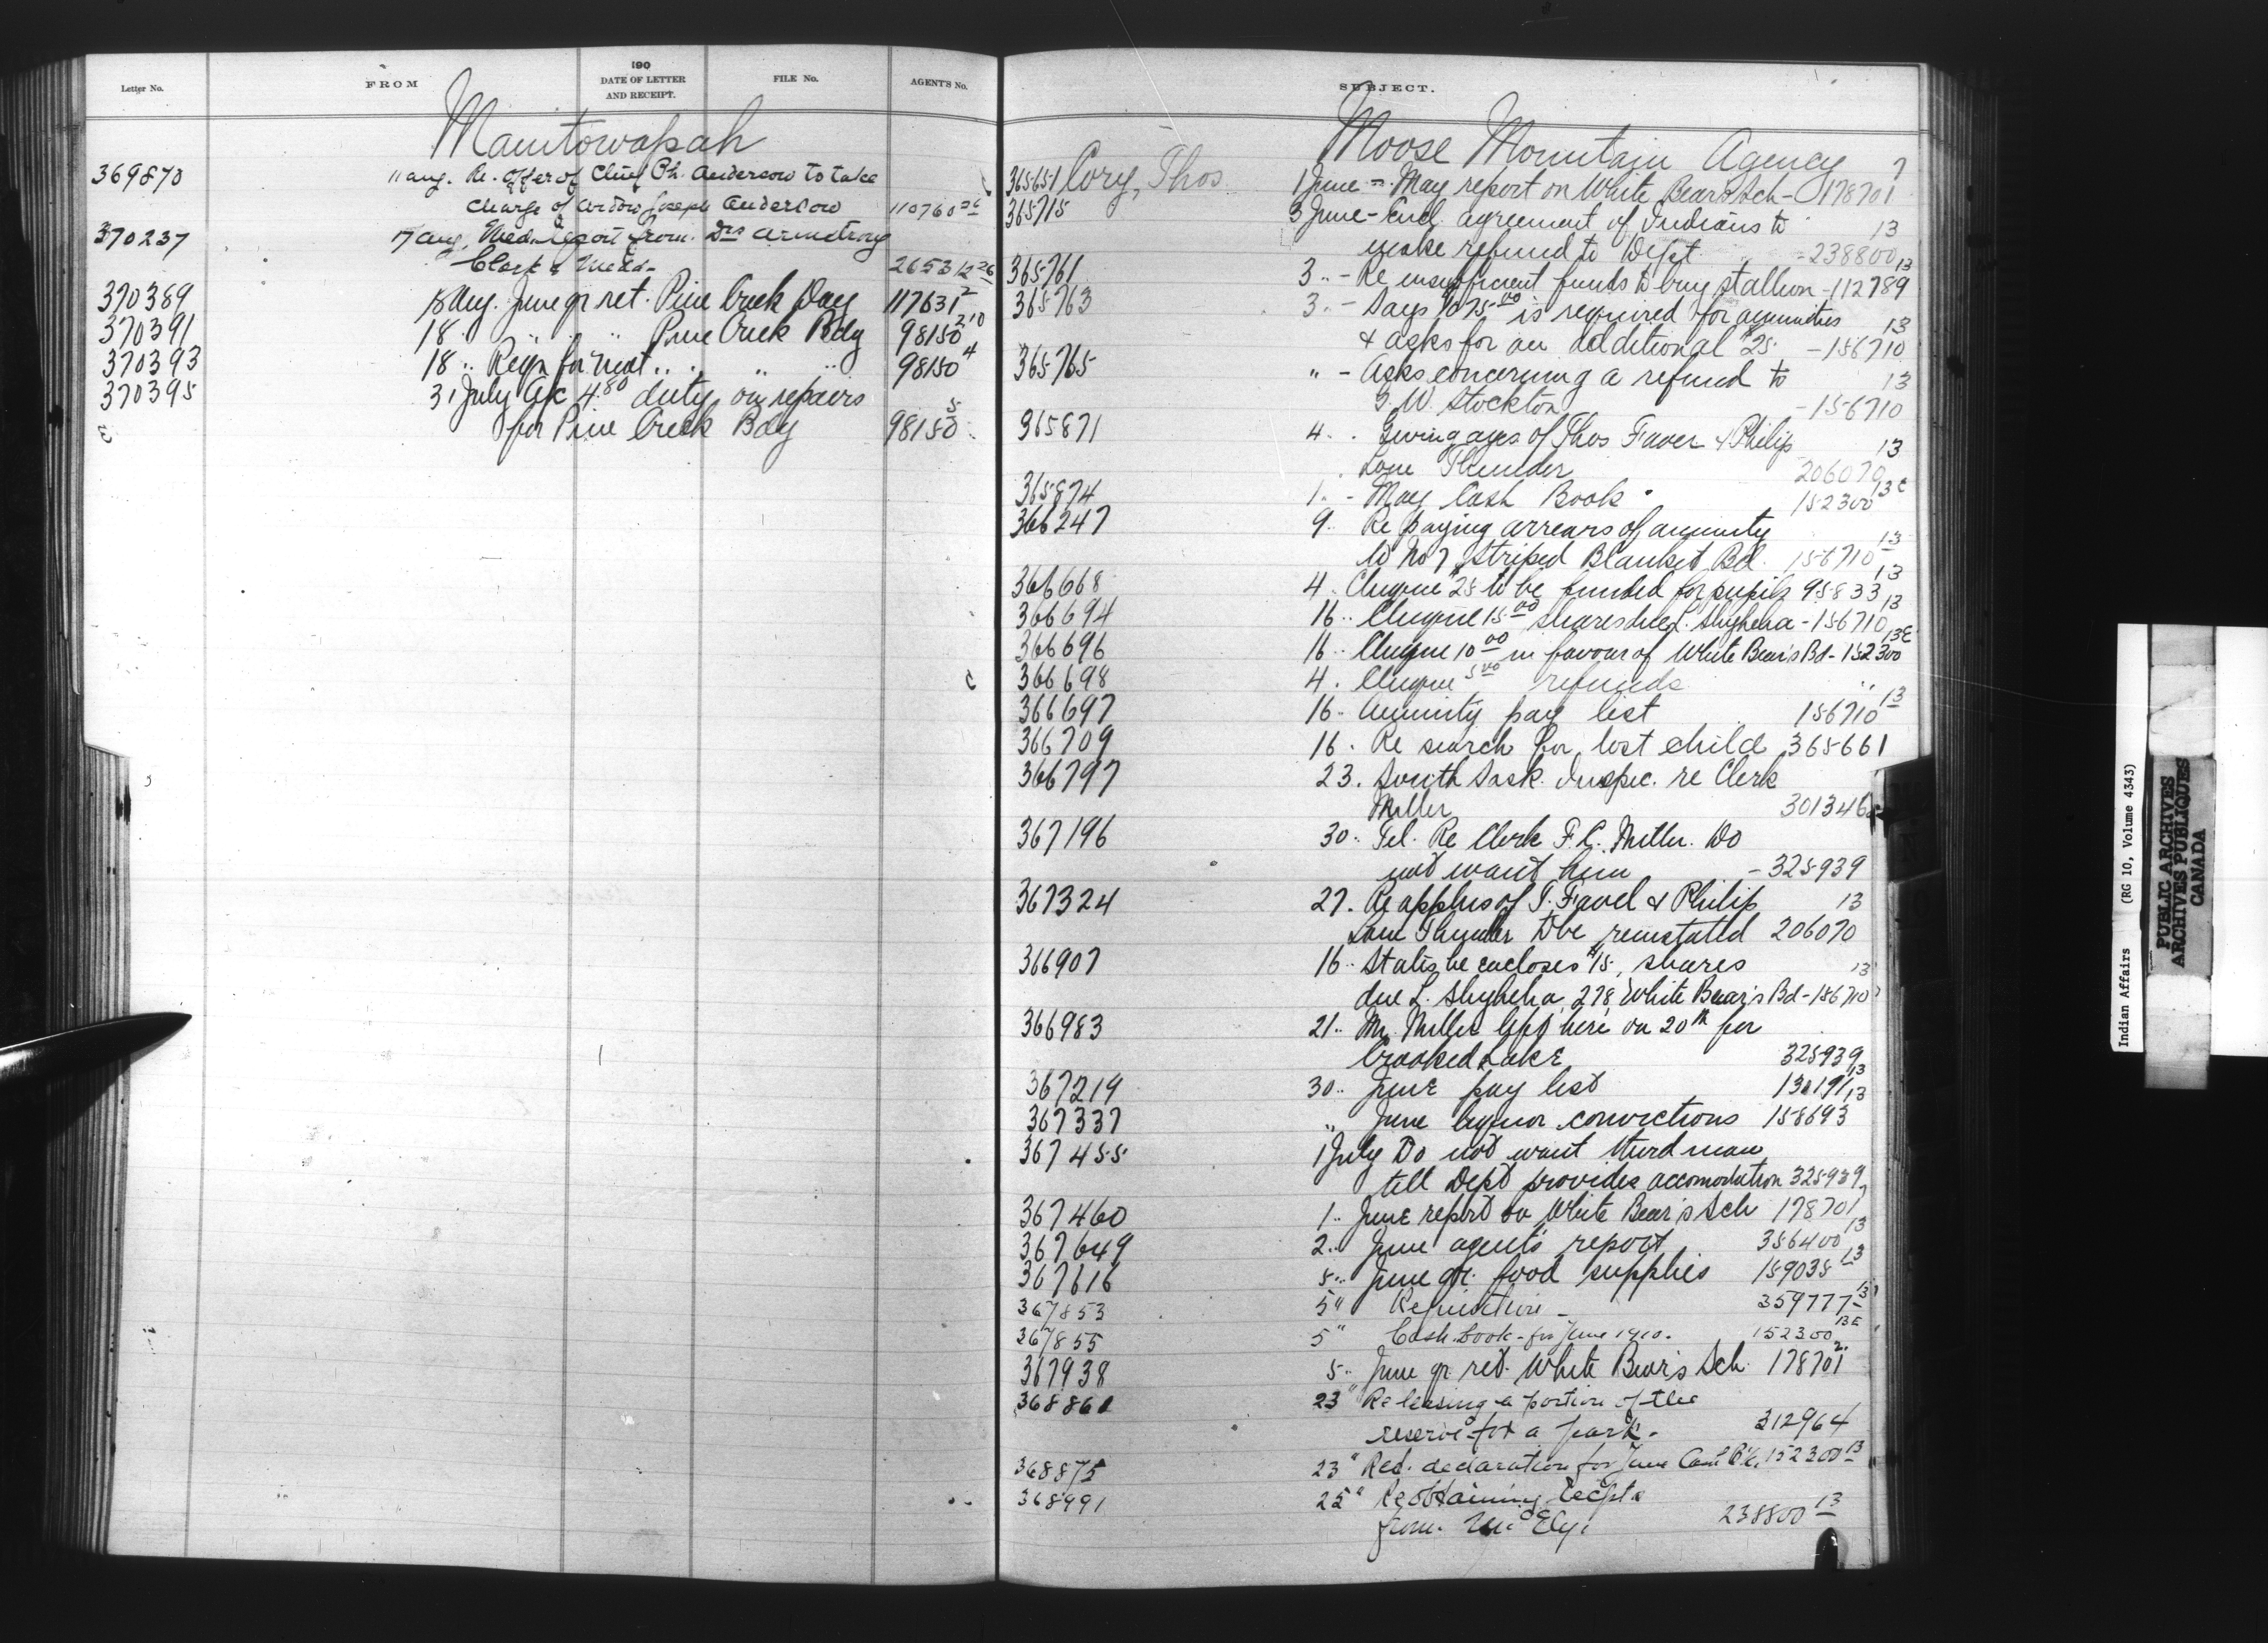 Letter No.
FROM
190
DATE OF LETTER
AND RECEIPT.
FILE No.
AGENT'S No.
Manitowapah
369870 11 aug. Re. offer of Chief Ph. Anderson to take
charge of widow Joseph Anderson 110760
370237 17 aug. Med. report from Drs Armstrong
Clark & 2653
370389 18 Aug. June qr ret. Pine Creek Day 117631 2
370391 18 " " " Pine Creek Bdg 98150 210
370393 18 " Reqn for meat " " " 98150 4
370395 31 July a/c 4.80 duty on repairs
for Pine Creek Bdg 98150 5
SUBJECT.
Moose Mountain Agency
365651 Cory, Thos 1 June - May report on White Bear's Sch - 178701 7
365715 3 June - Encl. agreement of Indians to
make refund to Dept. - 238800 13
365761 3 " - Re insufficient funds to buy stallion - 112789 13
365763 3 " - Says 1075.00 is required for annuities
& asks for an additional $25. - 156710 13
365765 " - Asks concerning a refund to
G. W. Stockton - 156710 13
365871 4 " Giving ages of Thos Favel & Philip
Lone Thunder 206070 13
365874 1 " - May Cash Book 152300 13E
366247 9 " Re paying arrears of annuity
to No 7, Striped Blanket Bd. 156710 13
366668 4 " Cheque $25 to be funded for pupils 95833 13
366694 16 " Cheque 15.00 shares due L. Shyheha - 156710 13
366696 16 " Cheque 10.00 in favour of White Bear's Bd - 152300 13E
366698 4 " Cheque 5.00 refunds "
366697 16 " Annuity pay list 156710 13
366709 16 " Re search for lost child 365661
366797 23 " South Sask. Inspec. re Clerk
Miller 301346
367196 30 " Tel. Re Clerk F.C. Miller. Do
not want him - 325939
367324 27 " Re applns of T. Favel & Philip
Lone Thunder to be reinstated 206070 13
366907 16 " States he encloses $15, shares
due L. Shyheha, 278, White Bear's Bd - 156710 13
366983 21 " Mr. Miller left here on 20th for
Crooked Lake 325939
367219 30 " June pay list 130191 13
367337 " June liquor convictions 158693 13
367455 1 July Do not want third man
till Dept provides accomodation 325939
367460 1 " June report on White Bear's Sch 178701 7
367649 2 " June agent's report 356400 13
367616 5 " June qr. food supplies 159035 13
367853 5 " Requisition - 359777 13
367855 5 " Cash book - for June 1910. 152300 13E
367938 5 " June qr ret. White Bear's Sch 178701 2
368861 23 " Re leasing a portion of the
reserve for a park. 312964
368875 23 " Ret. declaration for June Cash Bk. 152300 13
368991 25 " Re obtaining recpts
from McEly. 238800 13
Indian Affairs (RG 10, Volume 4343)
PUBLIC ARCHIVES
ARCHIVES PUBLIQUES
CANADA